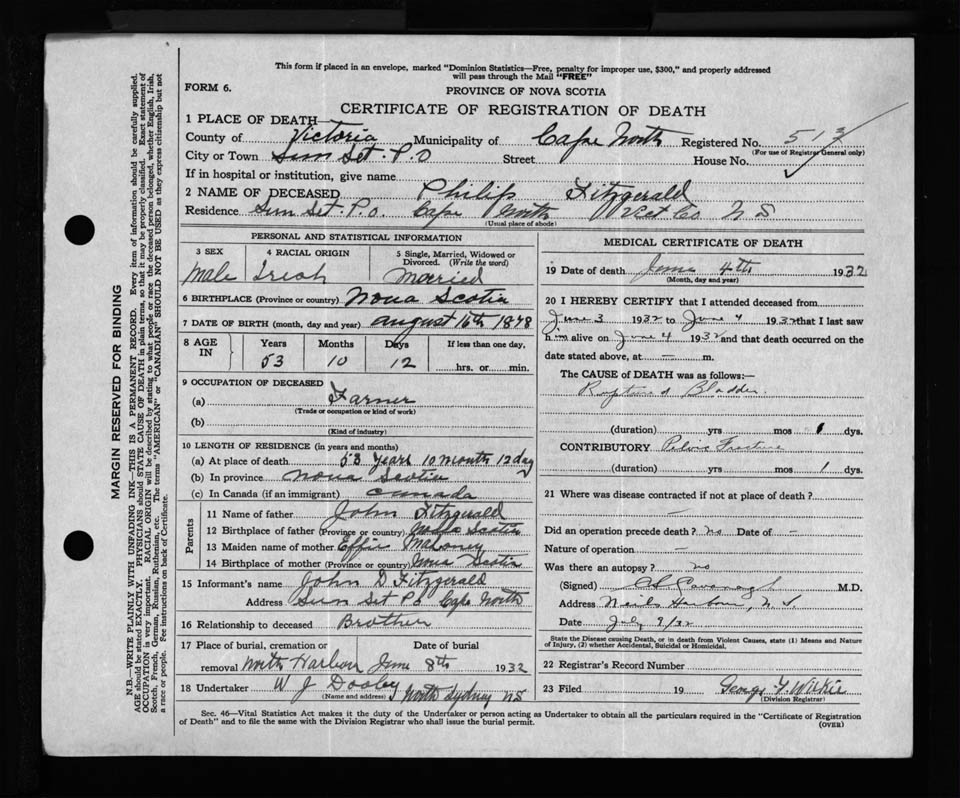 This form if placed in an envelope, marked "Dominion Statistics—Free, penalty for improper use, $300," and properly addressed
will pass through the Mail "FREE"
FORM 6.
PROVINCE OF NOVA SCOTIA
CERTIFICATE OF REGISTRATION OF DEATH
1 PLACE OF DEATH
County of Victoria Municipality of Cape North Registered No. 513
(For use of Registrar General only)
City or Town Sun Set. P.O Street House No.
If in hospital or institution, give name
2 NAME OF DECEASED Philip Fitzgerald
Residence Sun Set. P.O. Cape North Vict Co N S
(Usual place of abode)
PERSONAL AND STATISTICAL INFORMATION
3 SEX 4 RACIAL ORIGIN 5 Single, Married, Widowed or Divorced. (Write the word)
Male Irish Married
6 BIRTHPLACE (Province or country) Nova Scotia
7 DATE OF BIRTH (month, day and year) August 16th 1878
8 AGE IN Years Months Days If less than one day,
53 10 12 hrs. or min.
9 OCCUPATION OF DECEASED
(a) Farmer
(Trade or occupation or kind of work)
(b)
(Kind of industry)
10 LENGTH OF RESIDENCE (in years and months)
(a) At place of death 53 Years 10 month 12 day
(b) In province Nova Scotia
(c) In Canada (if an immigrant) Canada
Parents
11 Name of father John Fitzgerald
12 Birthplace of father (Province or country) Nova Scotia
13 Maiden name of mother Effie Maloney
14 Birthplace of mother (Province or country) Nova Scotia
15 Informant's name John D Fitzgerald
Address Sun Set P.O Cape North
16 Relationship to deceased Brother
17 Place of burial, cremation or Date of burial
removal North Harbour June 8th 1932
18 Undertaker W J Dooley North Sydney NS
(Name and address)
MEDICAL CERTIFICATE OF DEATH
19 Date of death June 4th 1932
(Month, day and year)
20 I HEREBY CERTIFY that I attended deceased from
June 3 1932 to June 4 1932 that I last saw
him alive on June 4 1932 and that death occurred on the
date stated above, at — m.
The CAUSE OF DEATH was as follows:—
Ruptured Bladder
(duration) yrs mos 1 dys.
CONTRIBUTORY Pelvic Fracture
(duration) yrs mos 1 dys.
21 Where was disease contracted if not at place of death?
—
Did an operation precede death? no Date of —
Nature of operation —
Was there an autopsy? no
(Signed) Cavanagh M.D.
Address Neils Harbour, N. S
Date July 9/32
State the Disease causing Death, or in death from Violent Causes, state (1) Means and Nature
of Injury, (2) whether Accidental, Suicidal or Homicidal.
22 Registrar's Record Number
23 Filed 19 George Y. Wilkie
(Division Registrar)
Sec. 46—Vital Statistics Act makes it the duty of the Undertaker or person acting as Undertaker to obtain all the particulars required in the "Certificate of Registration
of Death" and to file the same with the Division Registrar who shall issue the burial permit.
(OVER)
MARGIN RESERVED FOR BINDING
N.B.—WRITE PLAINLY WITH UNFADING INK—THIS IS A PERMANENT RECORD. Every item of information should be carefully supplied.
AGE should be stated EXACTLY. PHYSICIANS should STATE CAUSE OF DEATH in plain terms, so that it may be properly classified. Exact statement of
OCCUPATION is very important. RACIAL ORIGIN will be described by stating to what people or race the deceased person belonged, whether English, Irish,
Scotch, French, German, Russian, Ruthenian, etc. The terms "AMERICAN" or "CANADIAN" SHOULD NOT BE USED as they express citizenship but not
a race or people. See instructions on back of Certificate.